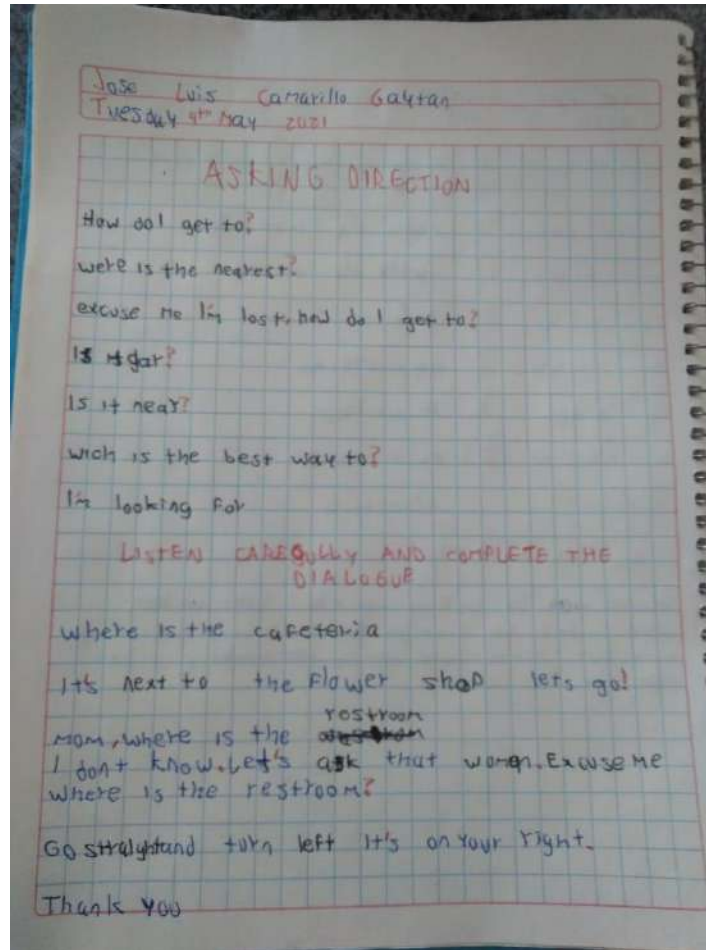 Jose Luis Camarillo Gaytan
Tuesday 4th May 2021
ASKING DIRECTION
How do I get to?
were is the nearest?
excuse me I'm lost, how do I get to?
Is it far?
Is it near?
wich is the best way to?
I'm looking For
LISTEN CAREFULLY AND COMPLETE THE
DIALOGUE
where is the cafeteria
It's next to the Flower shop lets go!
restroom
Mom, where is the
I don't know. Let's ask that women. Excuse me
where is the restroom?
Go straightand turn left It's on your right.
Thank you